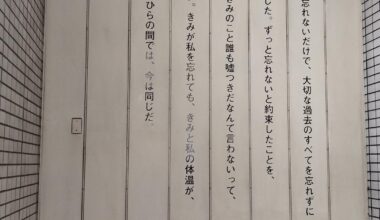 忘れないだけで、大切な過去のすべてを忘れずに
した。ずっと忘れないと約束したことを、
きみのこと誰も嘘つきだなんて言わないって、
。きみが私を忘れても、きみと私の体温が、
ひらの間では、今は同じだ